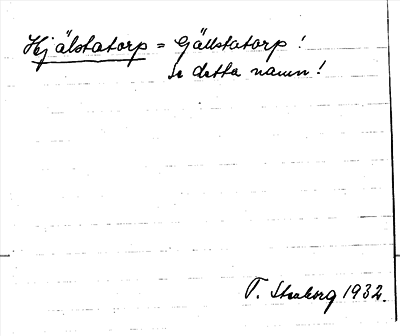 Hjälstatorp = Gällstatorp!
se detta namn!
T. Stenborg 1932.